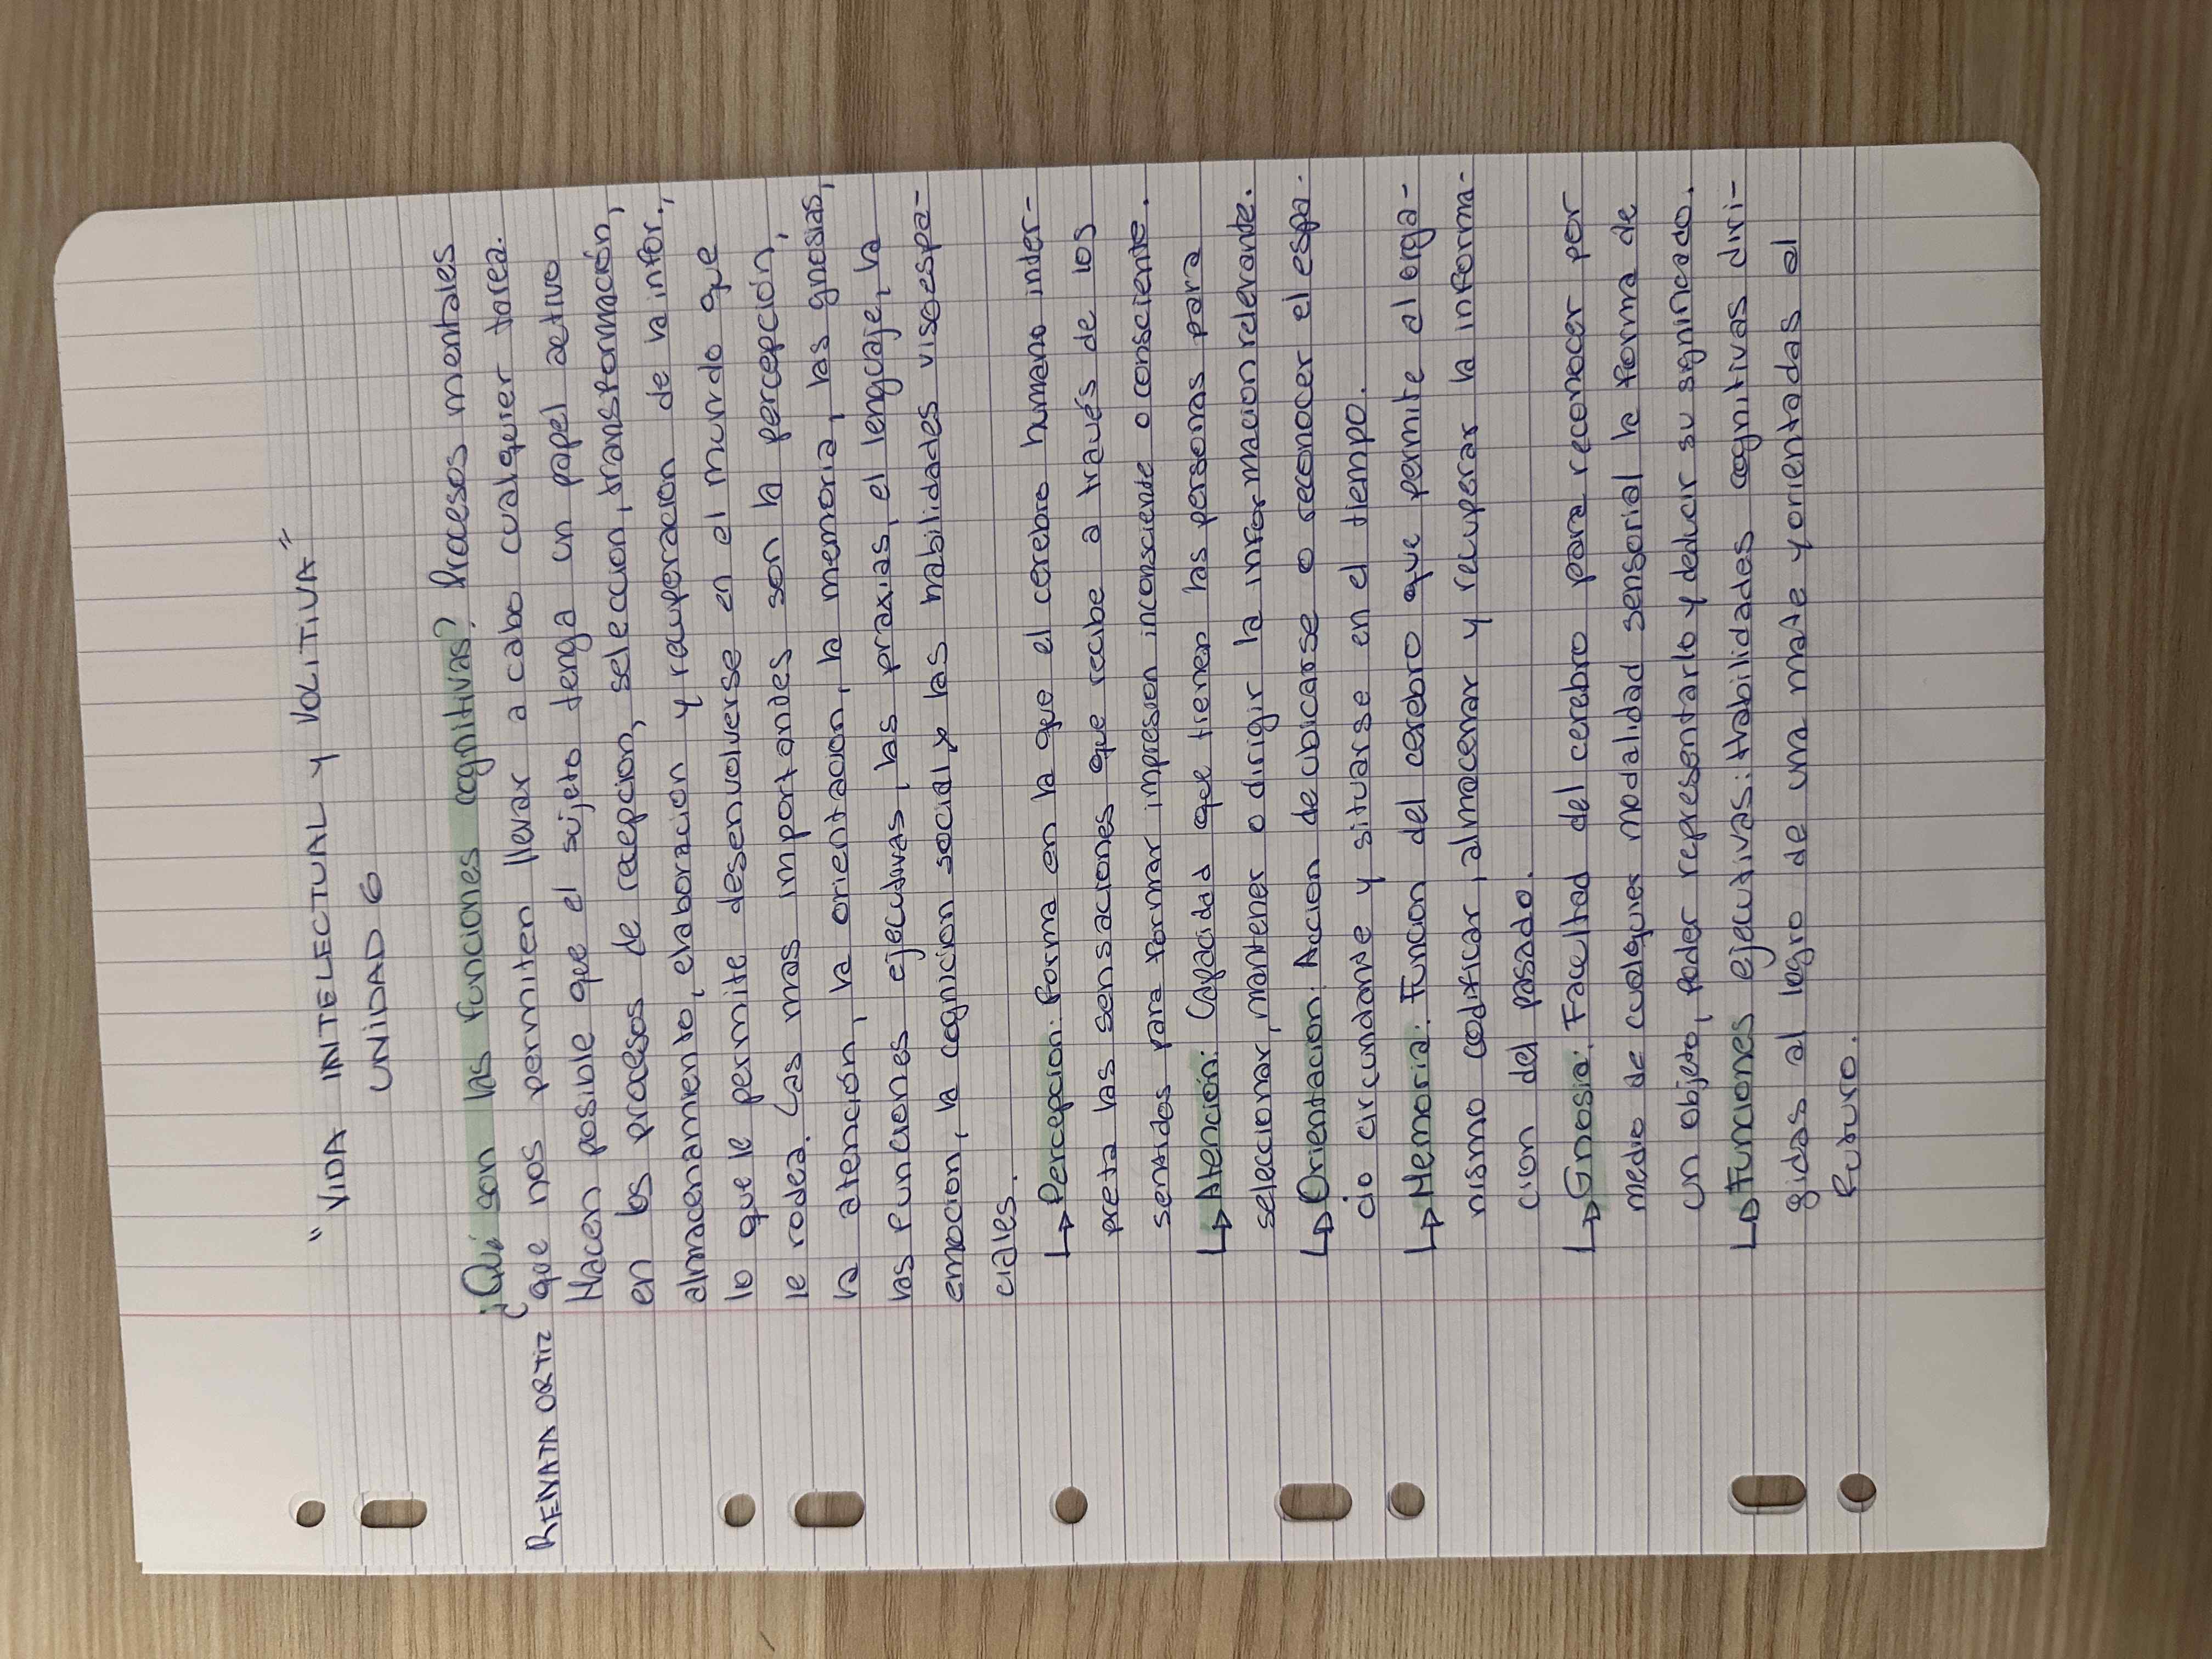 "VIDA INTELECTUAL Y VOLITIVA"
UNIDAD 6
¿Qué son las funciones cognitivas? Procesos mentales
RENATA ORTIZ
que nos permiten llevar a cabo cualquier tarea.
Hacen posible que el sujeto tenga un papel activo
en los procesos de recepcion, seleccion, transformación,
almacenamiento, elaboracion y recuperacion de la infor.,
lo que le permite desenvolverse en el mundo que
le rodea. Las mas importantes son la percepción,
la atención, la orientacion, la memoria, las gnosias,
las funciones ejecutivas, las praxias, el lenguaje, la
emocion, la cognicion social y las habilidades visoespa-
ciales.
↳ Percepcion: Forma en la que el cerebro humano inter-
preta las sensaciones que recibe a través de los
sentidos para formar impresion inconsciente o consciente.
↳ Atención: Capacidad que tienen las personas para
seleccionar, mantener o dirigir la informacion relevante.
↳ Orientacion: Accion de ubicarse o reconocer el espa-
cio circundante y situarse en el tiempo.
↳ Memoria: Funcion del cerebro que permite al orga-
nismo codificar, almacenar y recuperar la informa-
cion del pasado.
↳ Gnosia: Facultad del cerebro para reconocer por
medio de cualquier modalidad sensorial la forma de
un objeto, poder representarlo y deducir su significado.
↳ Funciones ejecutivas: Habilidades cognitivas diri-
gidas al logro de una mate y orientadas al
futuro.